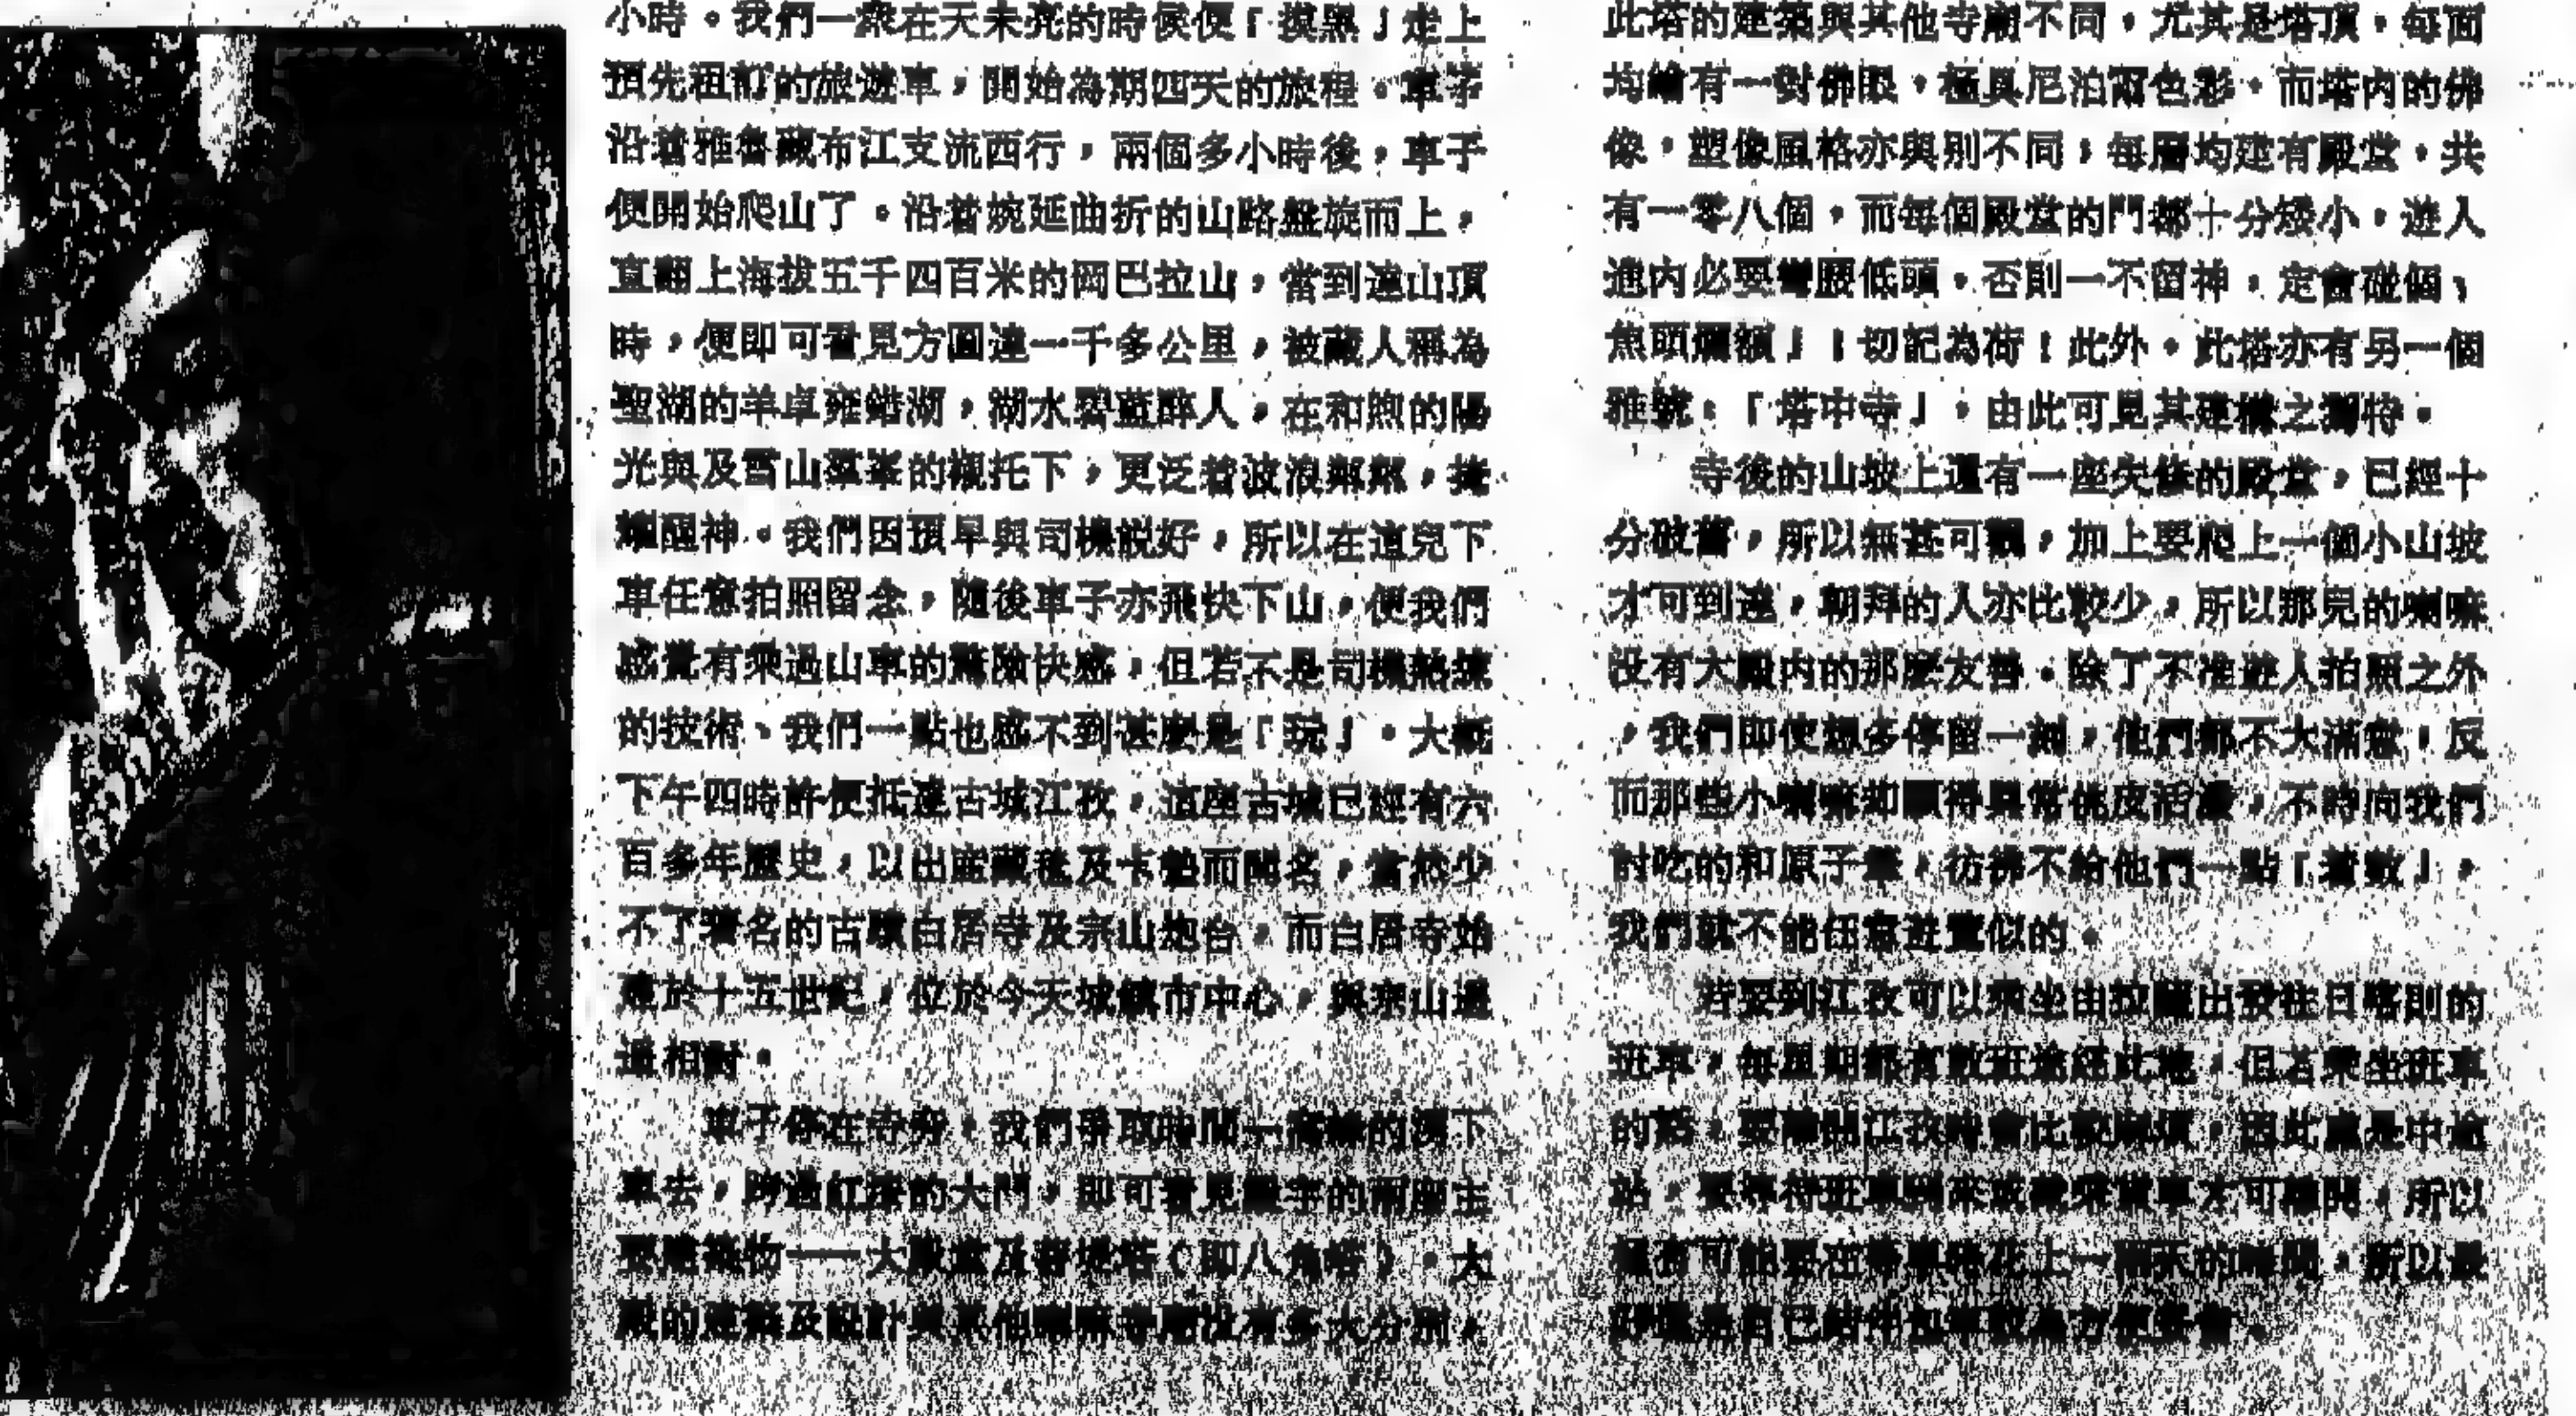 小時。我們一衆在天未亮的時候便「摸黑」走上
預先租訂的旅遊車，開始為期四天的旅程。車子
沿着雅魯藏布江支流西行，兩個多小時後，車子
便開始爬山了。沿着婉延曲折的山路盤旋而上，
直翻上海拔五千四百米的岡巴拉山，當到達山頂
時，便即可看見方圓達一千多公里，被藏人稱為
聖湖的羊卓雍錯湖，湖水碧藍醉人，在和煦的陽
光與及雪山羣峯的襯托下，更泛着波浪粼粼，
醒神。我們因預早與司機説好，所以在這兒下
車任意拍照留念，隨後車子亦飛快下山，使我們
感覺有乘過山車的驚險快感，但若不是司機熟練
的技術、我們一點也感不到甚麽是「玩」。大概
下午四時許便抵達古城江孜，這座古城已經有六
百多年歷史，以出產藏毯及卡墊而聞名，當然少
不了著名的古蹟白居寺及宗山炮台。而白居寺始
建於十五世紀，位於今天城鎮市中心，與宗山遙
遙相對。
車子停在寺旁，我們爭取時間的湧下
車去，跨過紅漆的大門，即可看見殿宇的兩座主
要建築物——大殿及菩提塔（即八角塔）。大
殿的建築及設計與其他喇嘛寺廟没有多大分別，
此塔的建築與其他寺廟不同，尤其是塔頂，每面
均繪有一對佛眼，極具尼泊爾色彩。而塔内的佛
像，塑像風格亦與別不同；每層均建有殿堂，共
有一零八個，而每個殿堂的門都十分矮小，遊人
進内必要彎腰低頭，否則一不留神，定會碰個「
焦頭爛額」！切記為荷！此外，此塔亦有另一個
雅號：「塔中寺」，由此可見其建構之獨特。
寺後的山坡上還有一座失修的殿堂，已經十
分破舊，所以無甚可觀，加上要爬上一個小山坡
才可到達，朝拜的人亦比較少，所以那兒的喇嘛
没有大殿内的那麽友善。除了不准遊人拍照之外
，我們即使想多停留一刻，他們都不大滿意！反
而那些小喇嘛却顯得異常佻皮活潑，不時向我們
討吃的和原子筆，彷彿不給他們一點「着數」，
我們就不能任意遊覽似的。
若要到江孜可以乘坐由拉薩出發往日喀則的
班車，每星期都有數班途經此地，但若乘坐班車
的話，要離開江孜時會比較麻煩，因此處是中途
站，要等待班車才可離開，所以
有可能要在花上一兩天的時間，所以最